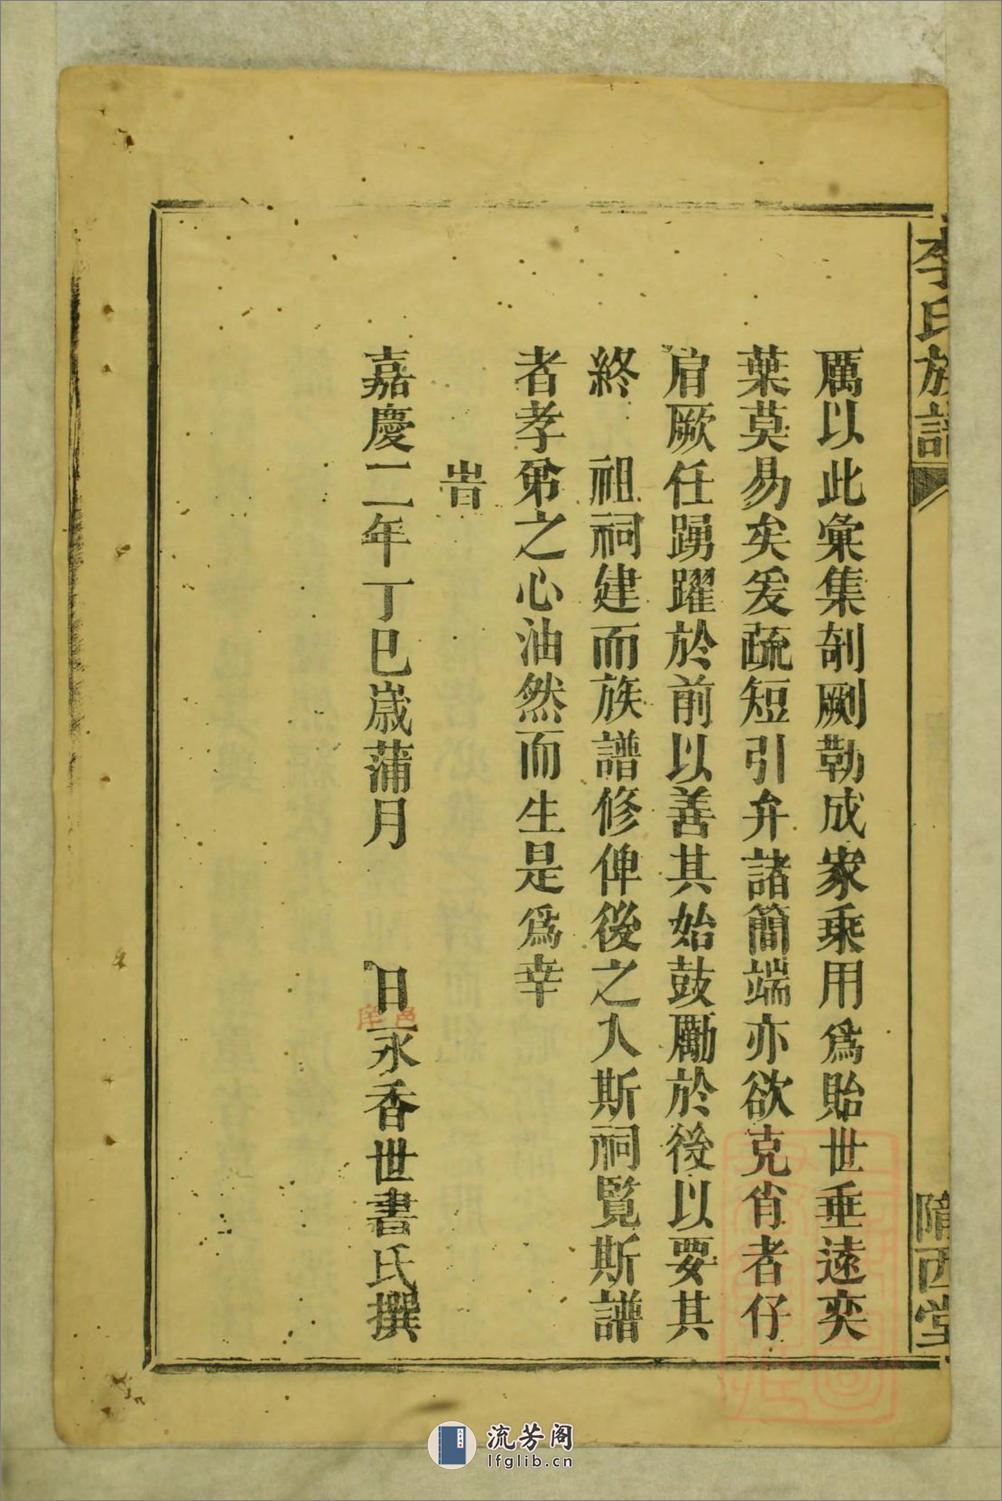 李氏族譜
隴西堂
厲以此彙集剞劂勒成家乘用爲貽世垂遠奕
葉莫易矣爰疏短引弁諸簡端亦欲克肖者仔
肩厥任踴躍於前以善其始鼓勵於後以要其
終　祖祠建而族譜修俾後之人斯祠覽斯譜
者孝弟之心油然而生是爲幸
旹
嘉慶二年丁巳歲蒲月　　日永香世書氏撰
流芳阁
lfglib.cn